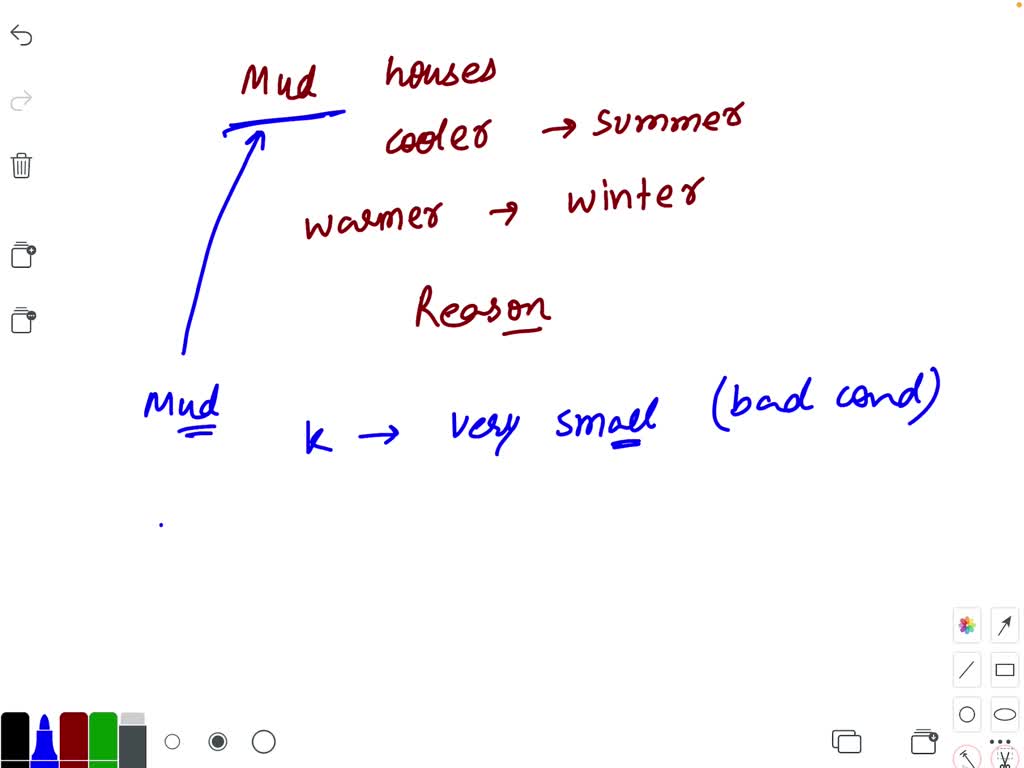 Mud houses
cooler → summer
warmer → winter
Reason
Mud
k → very small (bad cond)